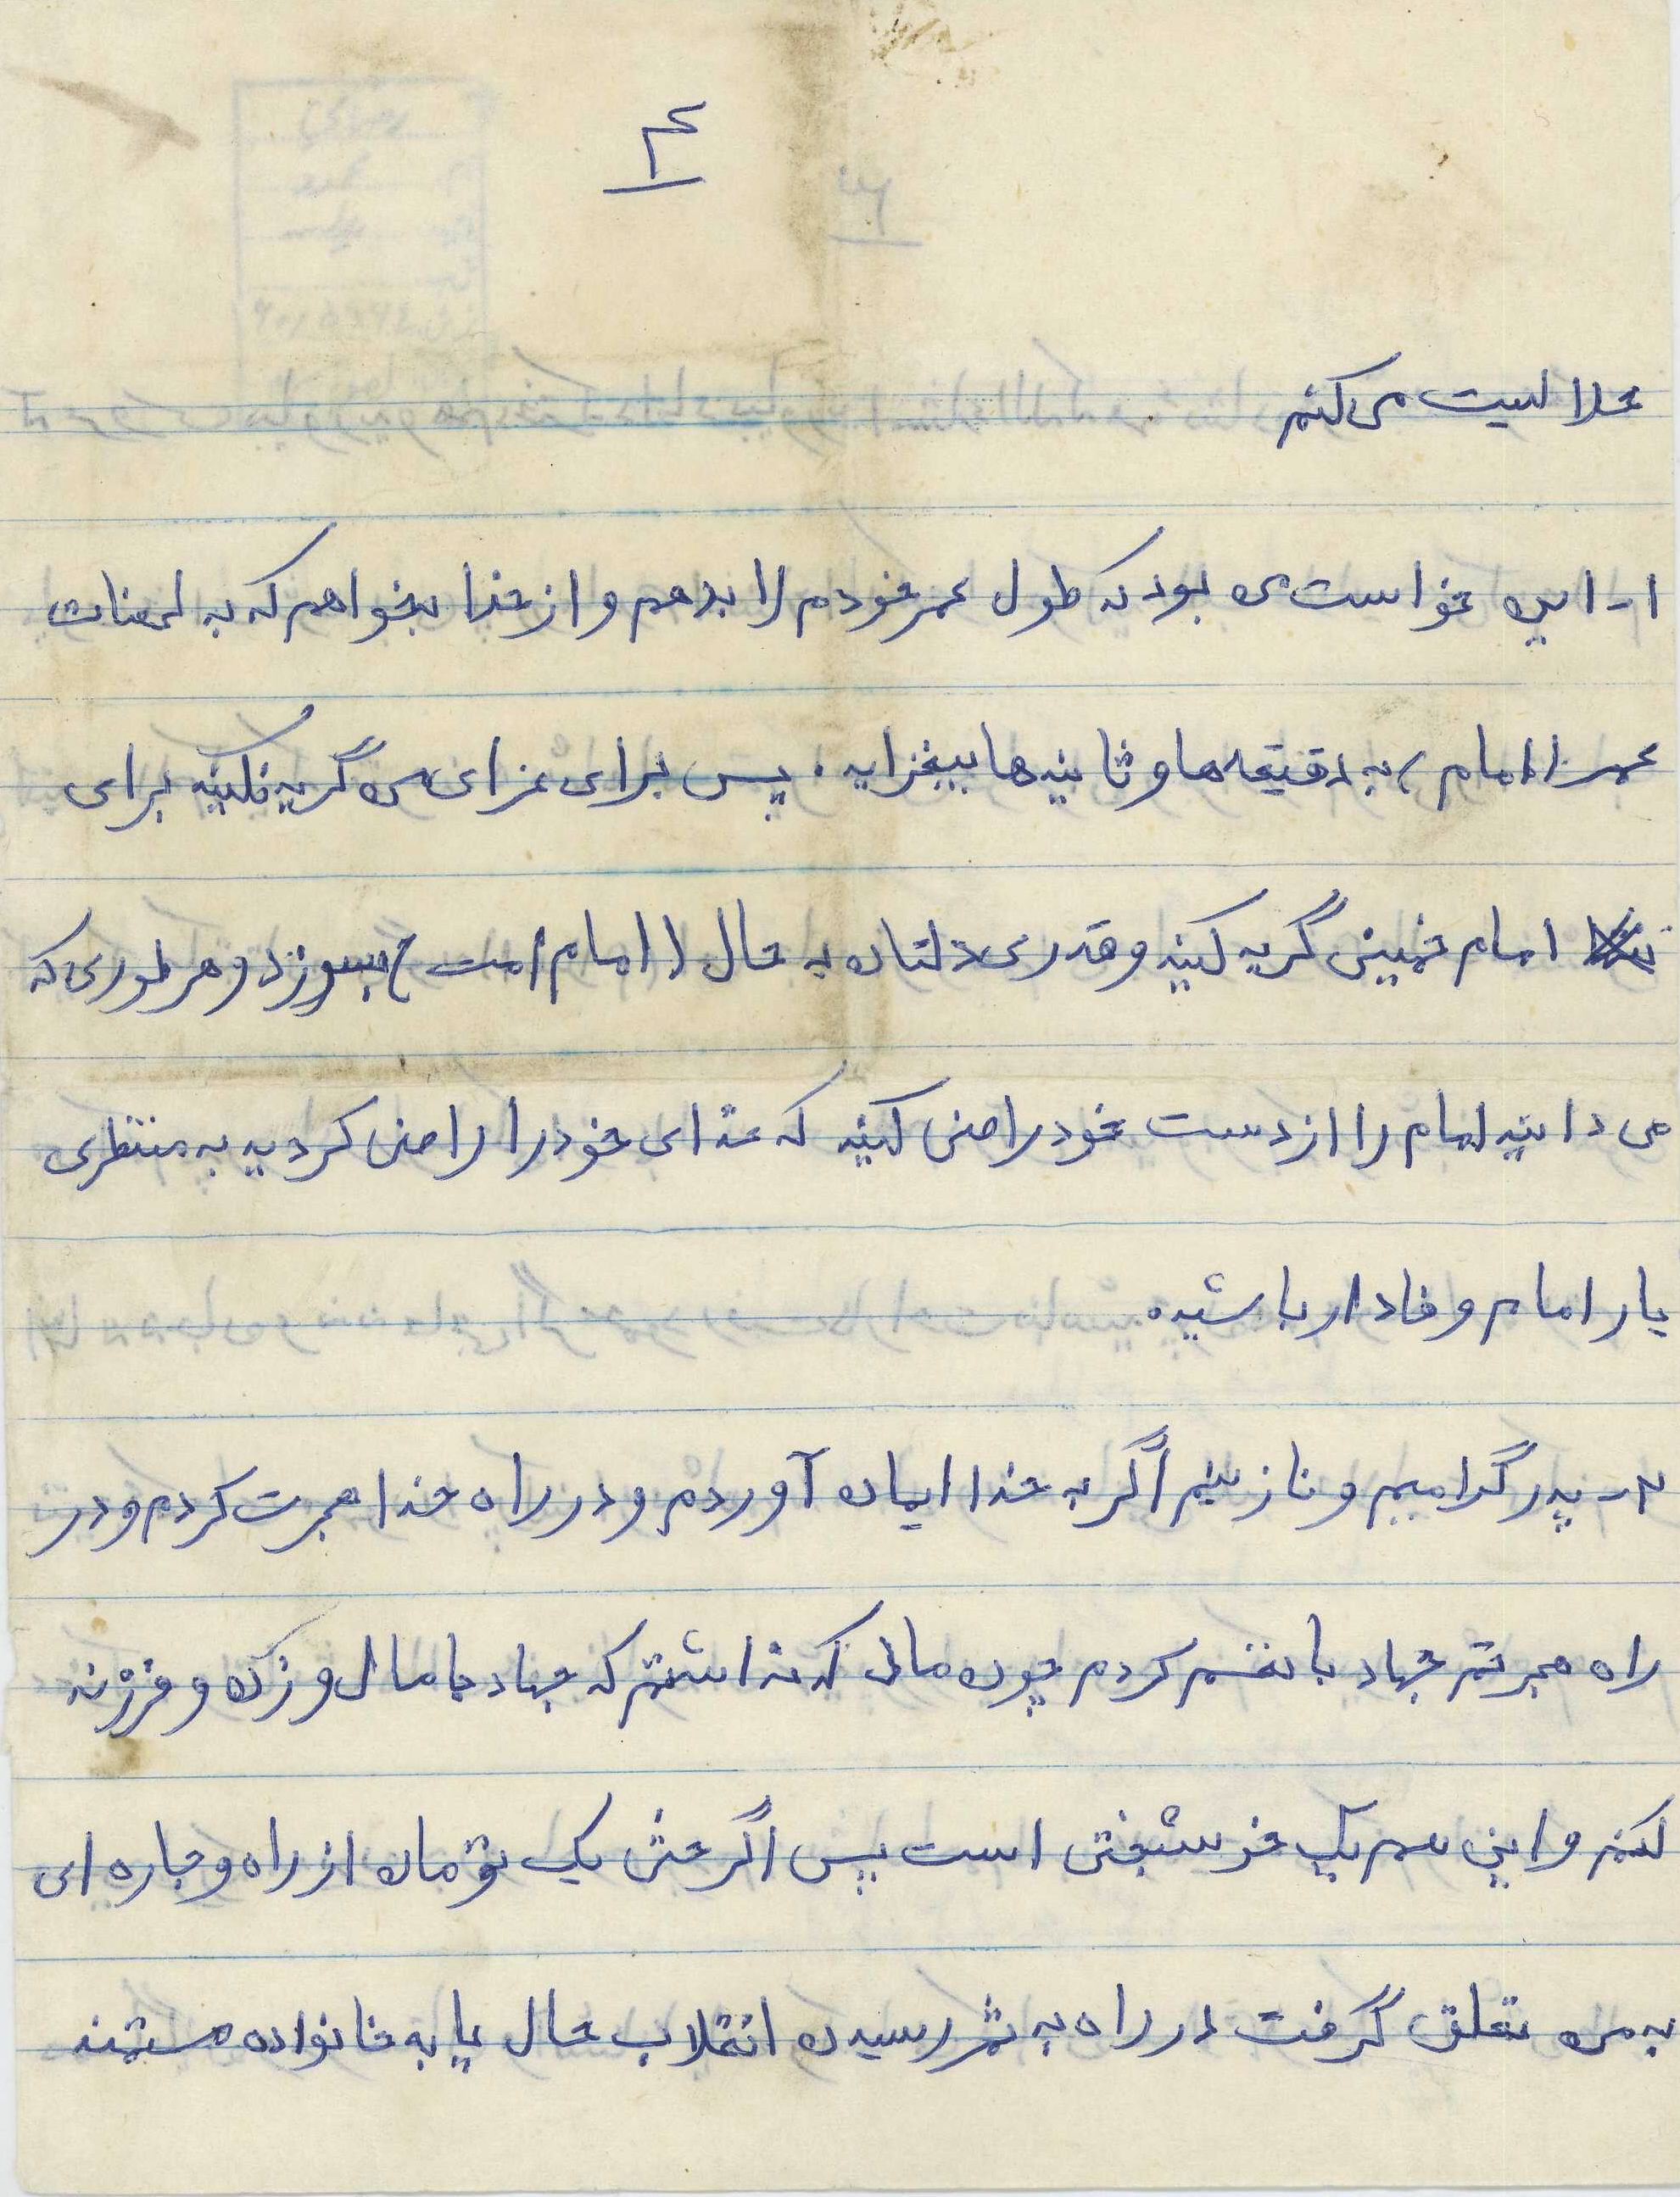 ۴
حلالیت می کنم
۱- این خواست من بود که طول عمر خودم را بدهم و از خدا بخواهم که به لحضات
عمر (امام) به دقیقه ها و ثانیه ها بیفزاید. پس برای عزای من گریه نکنید برای
امام خمینی گریه کنید و قدری دلتان به حال (امام امت) بسوزد و هر طوری که
می دانید امام را از دست خود راضی کنید که خدای خود را راضی کردید به منتظری
یار امام وفادار باشید.
۲- پدر گرامیم و نازنینم اگر به خدا ایمان آوردم و در راه خدا هجرت کردم و در
راه هجرتم جهاد با نفسم کردم چون مالی که نداشتم که جهاد با مال و زن و فرزند
کنم و این هم یک خوشبختی است پس اگر حتی یک تومان از راه و چاره ای
به من تعلق گرفت در راه به ثمر رسیدن انقلاب حال یا به خانواده مستمند